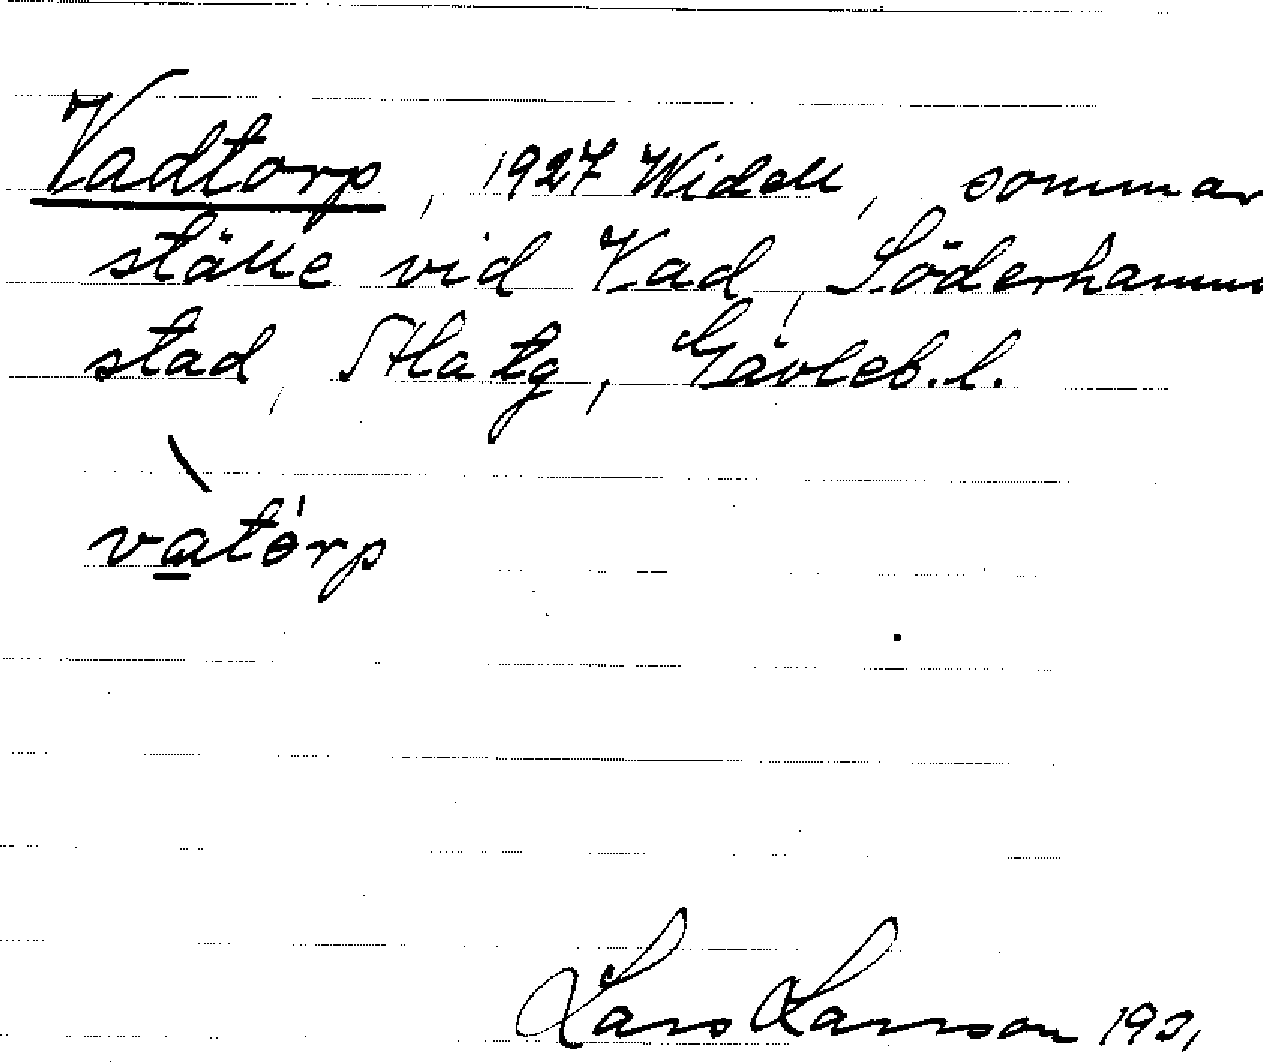 Vadtorp, 1927 Widell, sommar
ställe vid Vad, Söderhamns
stad, Ala tg, Gävleb. l.
vatórp
Lars Larsson